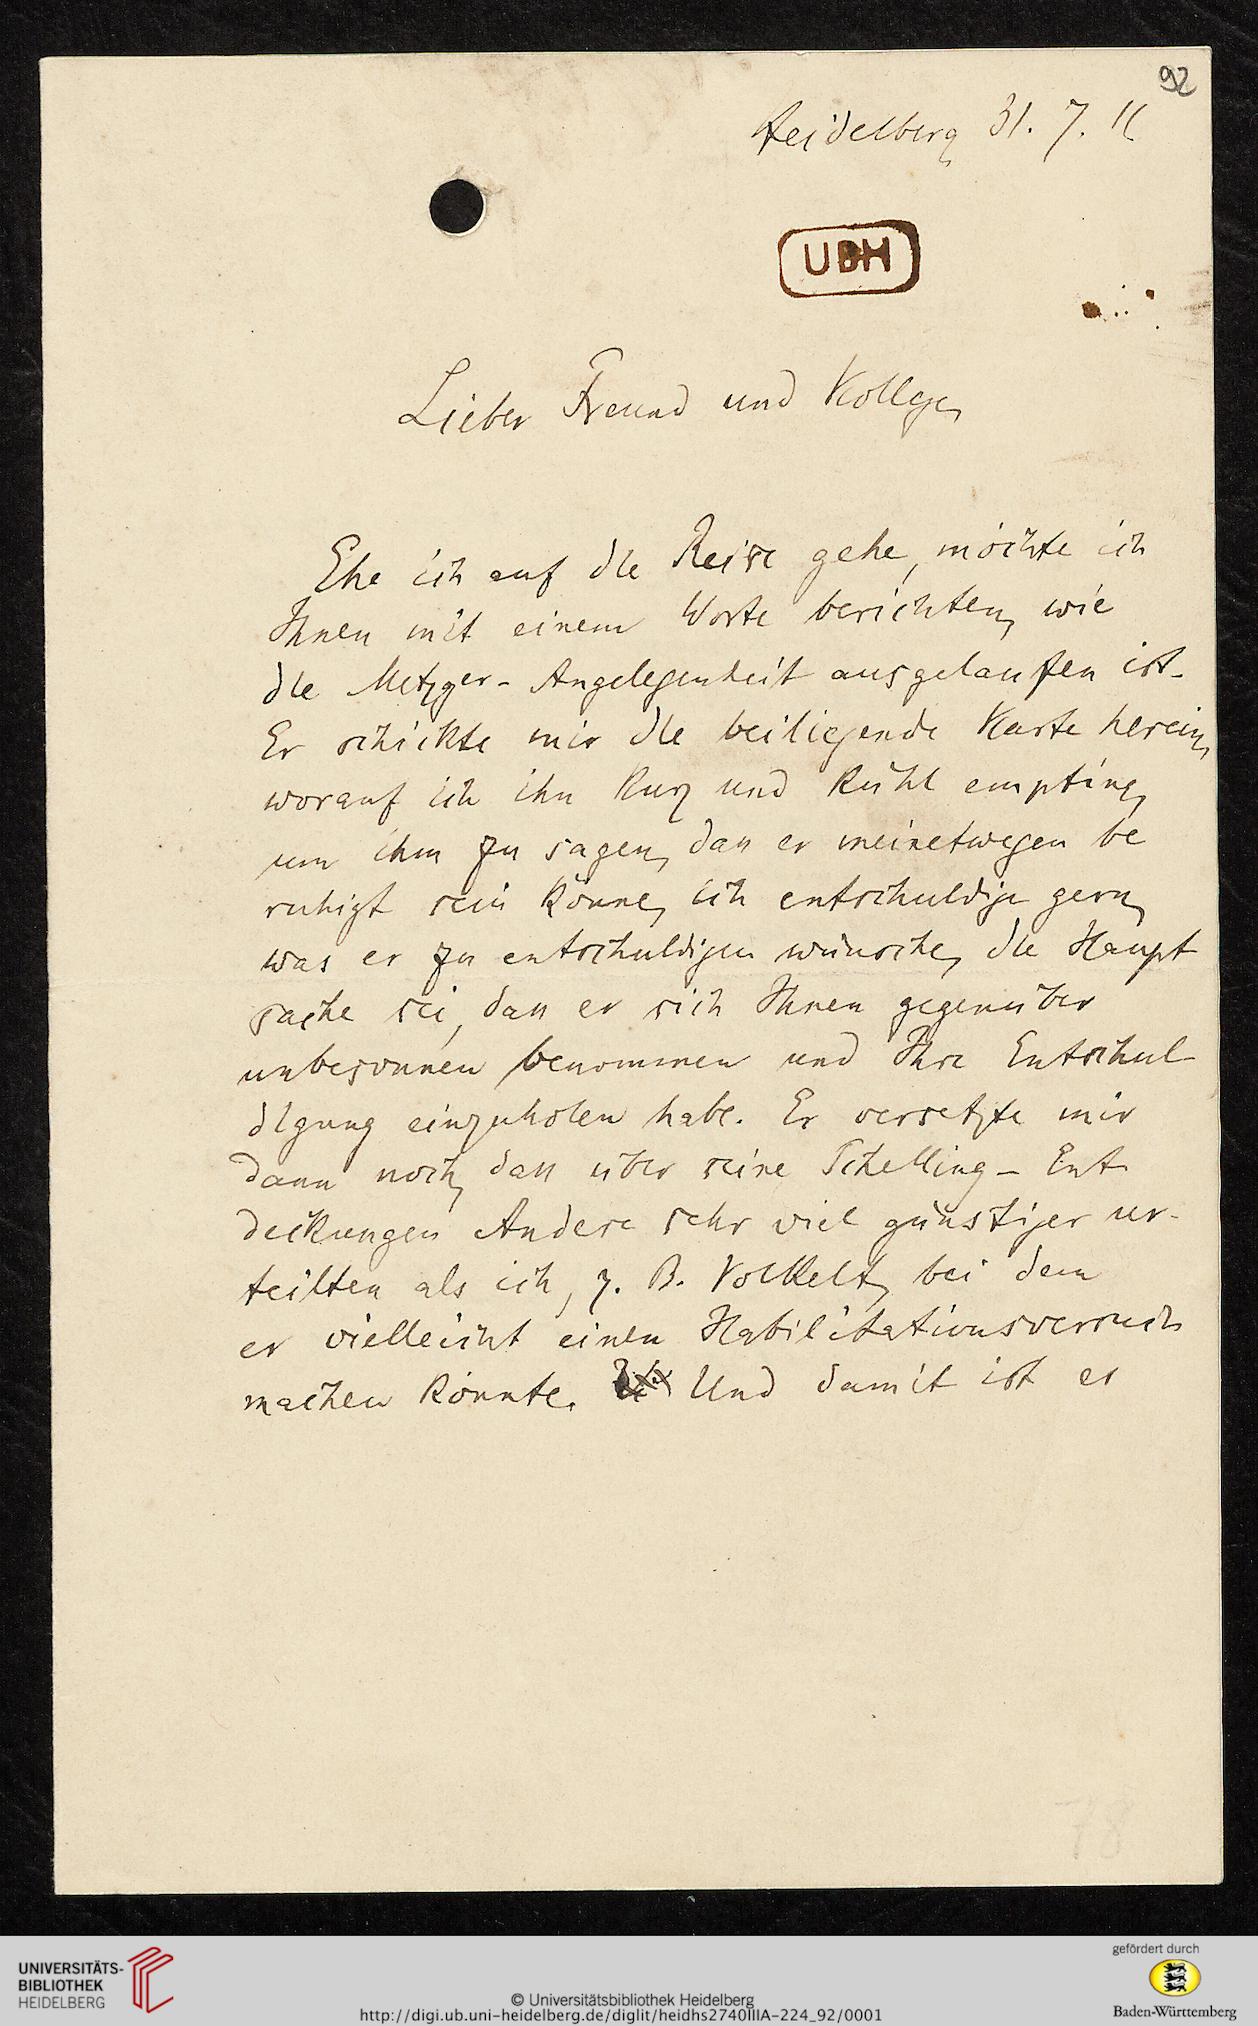 92
Heidelberg 31. 7. 11
UBH
Lieber Freund und Kollege,
Ehe ich auf die Reise gehe, möchte ich
Ihnen mit einem Worte berichten, wie
die Metzger-Angelegenheit ausgelaufen ist.
Er schickte mir die beiliegende Karte herein,
worauf ich ihn kurz und kühl empfing,
um ihm zu sagen, dass er meinetwegen be
ruhigt sein könne, ich entschuldige gern,
was er zu entschuldigen wünsche, die Haupt
sache sei, dass er sich Ihnen gegenüber
unbesonnen benommen und Ihre Entschul
digung einzuholen habe. Er versetzte mir
dann noch, dass über seine Schelling-Ent
deckungen Andere sehr viel günstiger ur-
teilten als ich, z. B. Volkelt, bei dem
er vielleicht einen Habilitationsversuch
machen könnte. Und damit ist er
78
UNIVERSITÄTS-
BIBLIOTHEK
HEIDELBERG
© Universitätsbibliothek Heidelberg
http://digi.ub.uni-heidelberg.de/diglit/heidhs2740IIIA-224_92/0001
gefördert durch
Baden-Württemberg